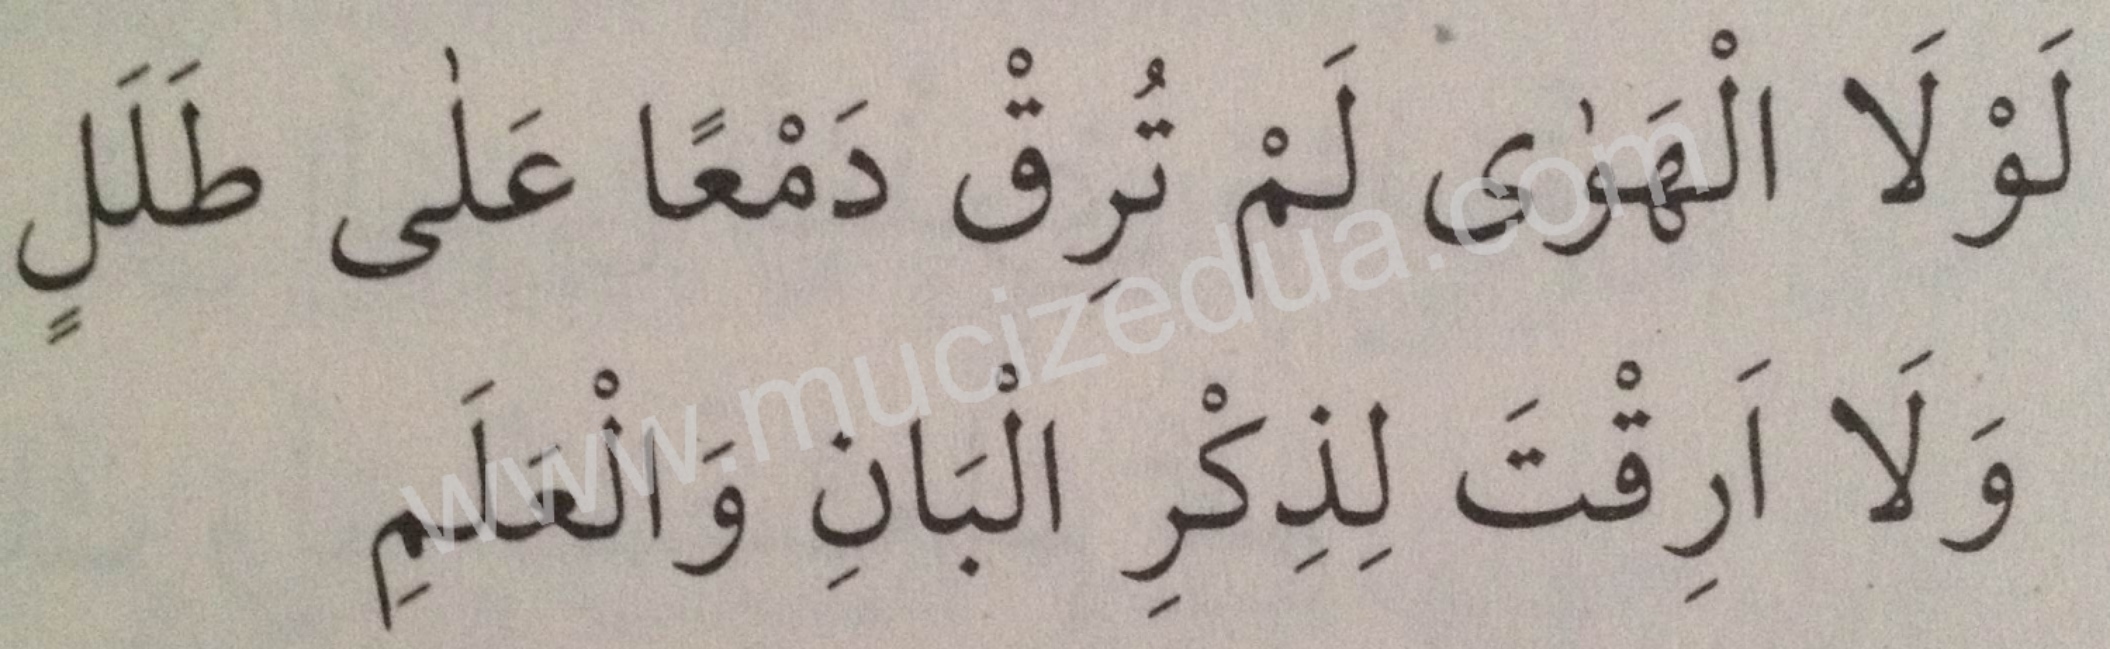 لَوْلَا الْهَوٰى لَمْ تُرِقْ دَمْعًا عَلٰى طَلَلٍ
وَلَا اَرِقْتَ لِذِكْرِ الْبَانِ وَالْعَلَمِ
www.mucizedua.com